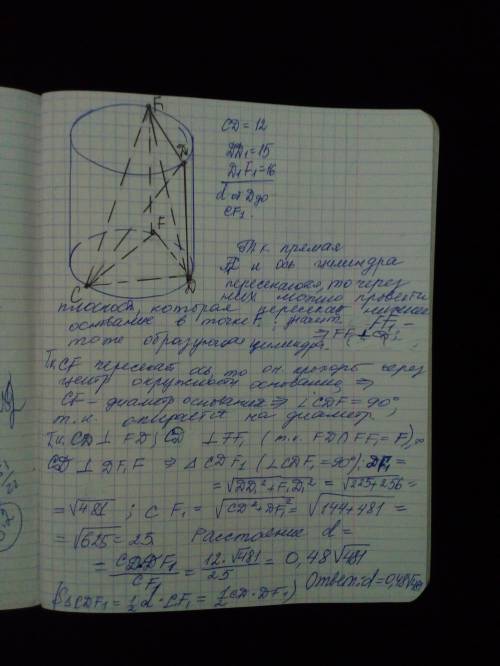 F₁
D₁
F
C
D
CD = 12
DD₁ = 15
D₁F₁ = 16
d от D до
CF₁.
Т.к. прямая
и ось цилиндра
пересекаются, то через
них можно провести
плоскость, которая пересекает нижнее
основание в точке F, значит FF₁ –
тоже образующая цилиндра. ⇒ FF₁ ⊥
Т.к. CF пересекает ось, то он проходит через
центр окружности основания ⇒
CF – диаметр основания ⇒ ∠CDF = 90°
т.к. опирается на диаметр;
Т.к. CD ⊥ FD; CD ⊥ FF₁ (т.к. FD ∩ FF₁ = F),
CD ⊥ DF₁F ⇒ △CDF₁ (∠CDF₁ = 90°). DF₁ =
= √DD₁² + F₁D₁² = √225+256 =
= √481 ; CF₁ = √CD² + DF₁² = √144+481 =
= √625 = 25. Расстояние d =
= CD·DF₁ / CF₁ = 12·√481 / 25 = 0,48√481
(S△CDF₁ = ½ d · CF₁ = ½ CD · DF₁) Ответ: d = 0,48√481